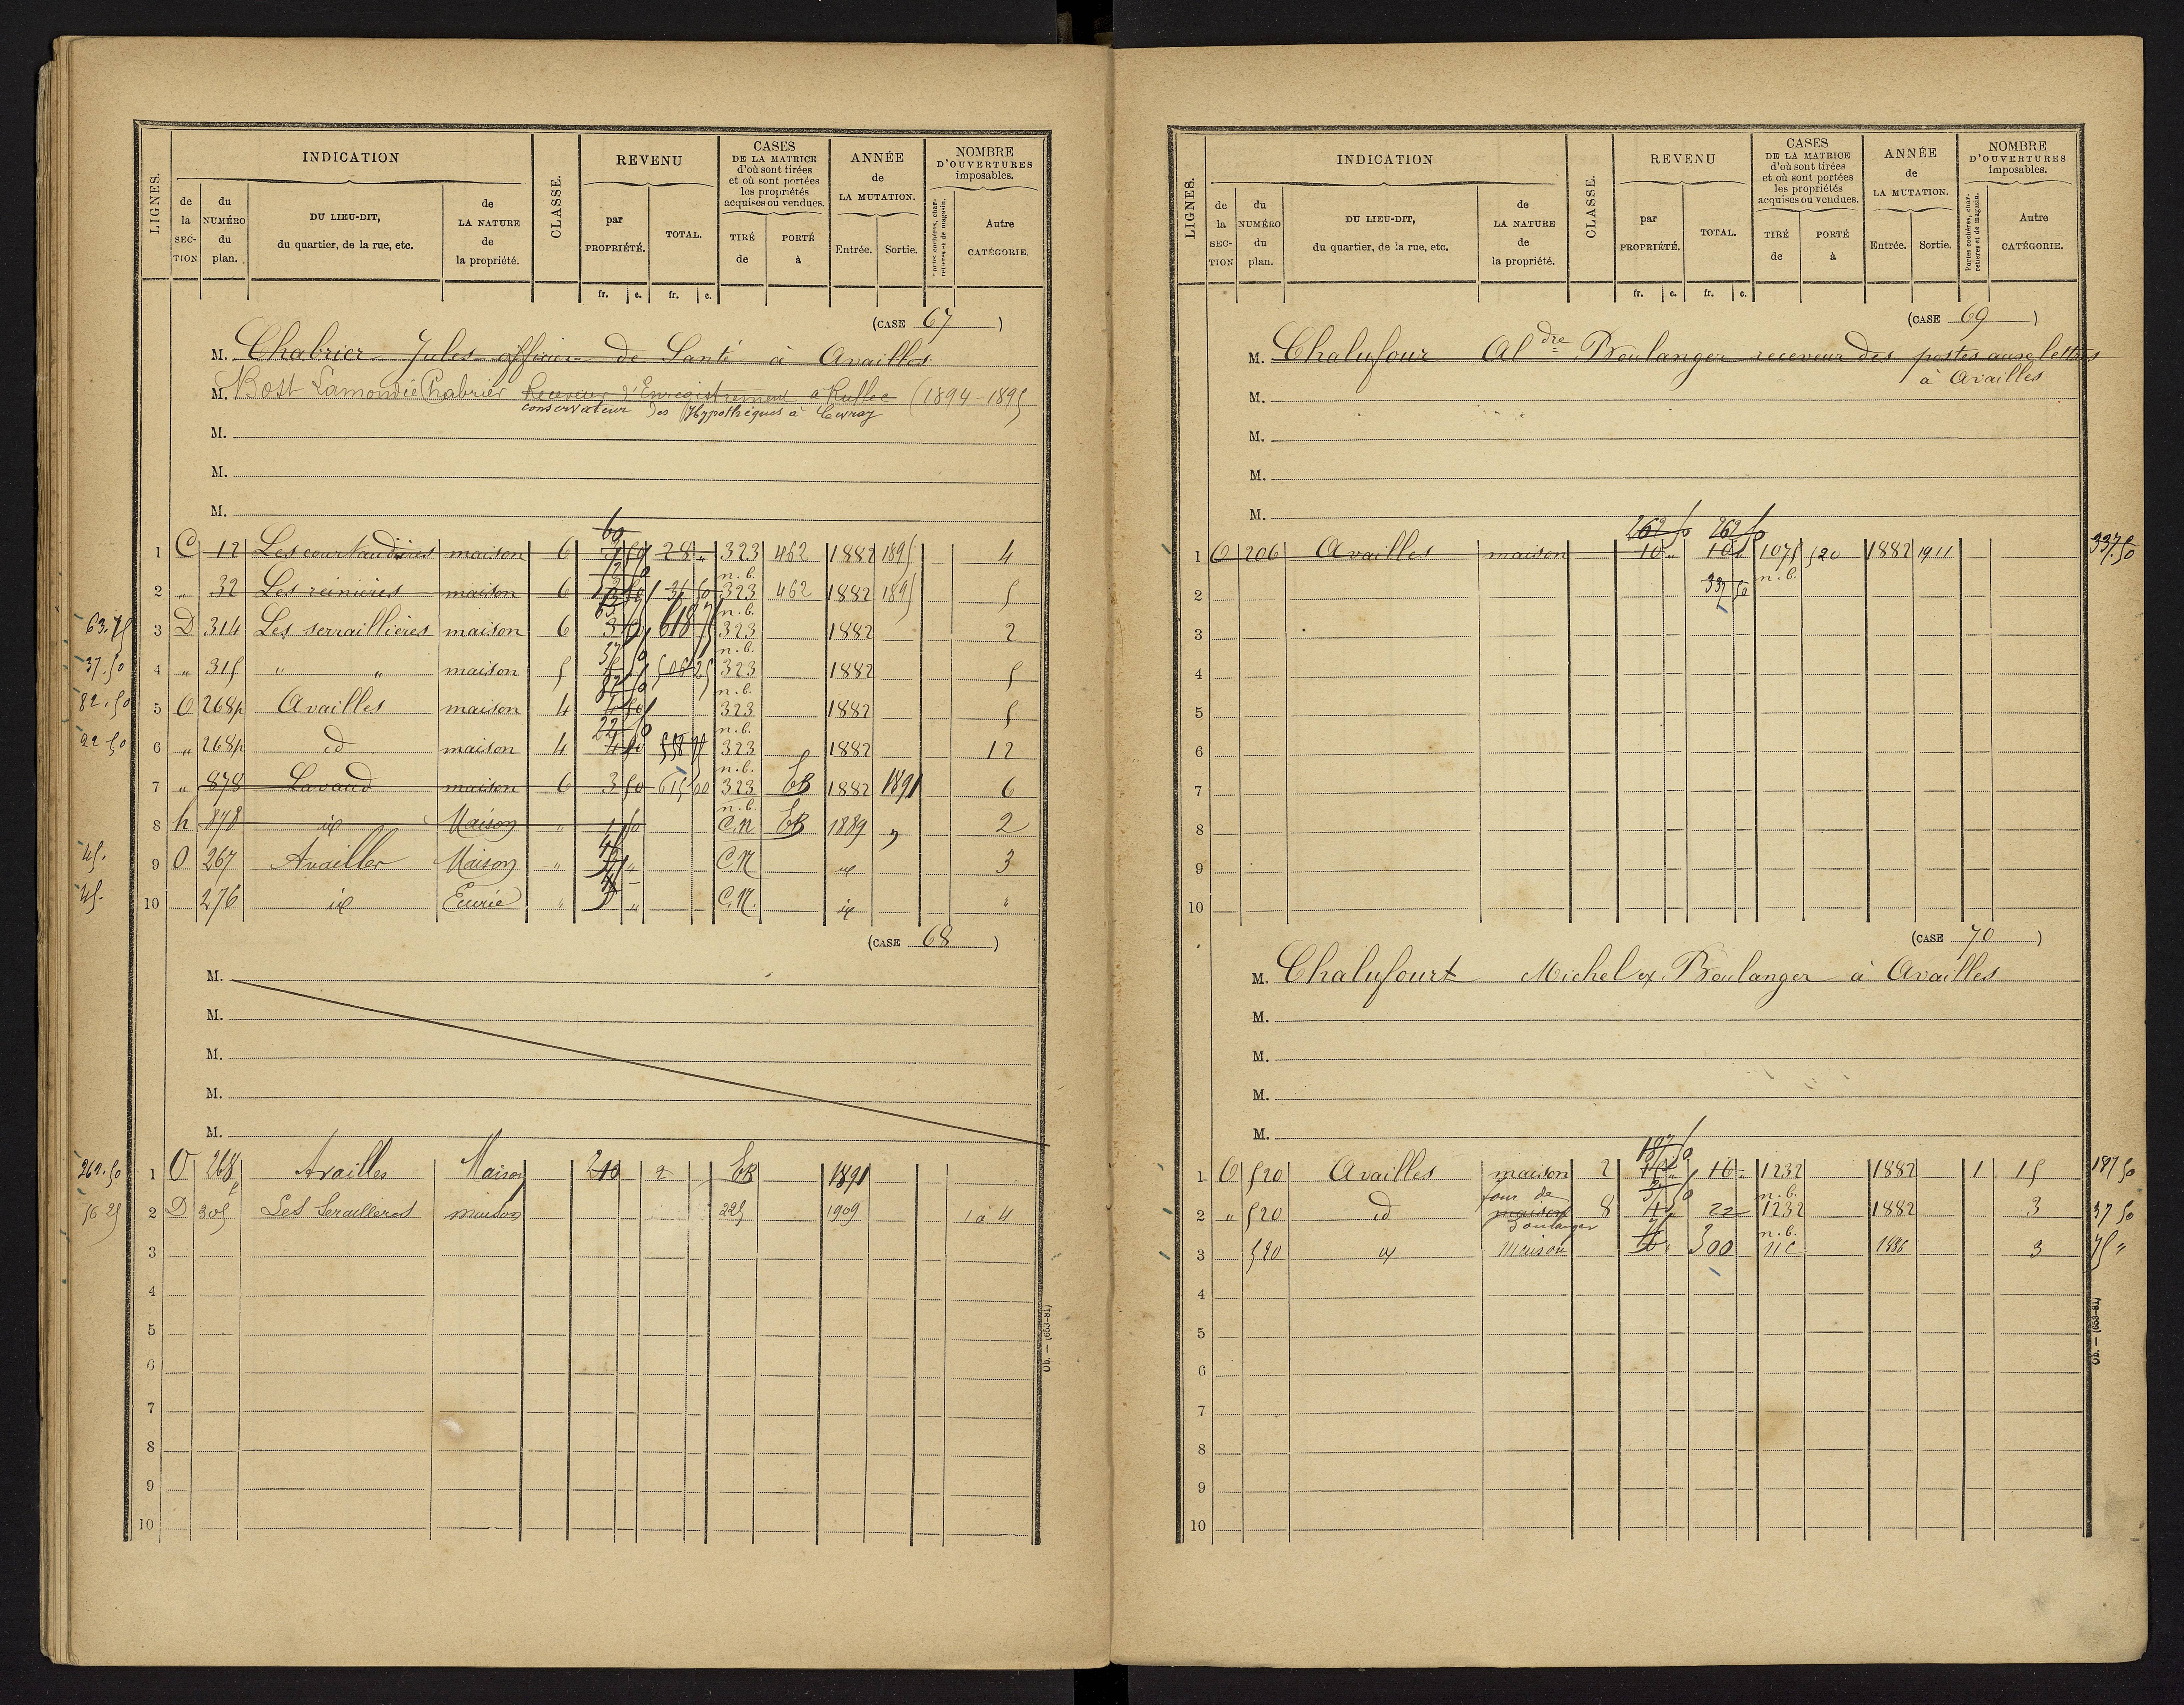 LIGNES. INDICATION CLASSE. REVENU CASES DE LA MATRICE d'où sont tirées et où sont portées les propriétés acquises ou vendues. ANNÉE de LA MUTATION. NOMBRE D'OUVERTURES imposables.
de la SECTION du NUMÉRO du plan. DU LIEU-DIT, du quartier, de la rue, etc. de LA NATURE de la propriété. par PROPRIÉTÉ. TOTAL. TIRÉ de PORTÉ à Entrée. Sortie. Portes cochères, charretières et de magasin. Autre CATÉGORIE.
fr. c. fr. c.
(CASE 67)
M. Chabrier Jules officier de Santé à Availles
M. Bost Lamondie Chabrier Receveur d'Enregistrement à Ruffec (1894-1895
conservateur des Hypothèques à Civray
M.
M.
M.
60
1 C 12 Les courtaudières maison 6 28 " 323 462 1882 1895 4
n.b.
2 " 32 Les reinières maison 6 31 50 323 462 1882 1895 5
n.b.
63.75 3 D 314 Les serraillières maison 6 3 50 618 75 323 1882 2
n.b.
37.50 4 " 315 " " maison 5 506 25 323 1882 5
n.b.
82.50 5 O 268p Availles maison 4 323 1882 5
22 50 n.b.
22 50 6 " 268p id maison 4 4 50 558 75 323 1882 12
n.b.
7 " 878 Lavaud maison 6 3 50 615 00 323 68 1882 1891 6
n.b.
8 h 878 id Maison " 1 50 C.N 68 1889 " 2
45. 9 O 267 Availles Maison " C.N id 3
45. 10 276 id Ecurie " C.N. id "
(CASE 68)
M.
M.
M.
M.
M.
262.50 1 O 268p Availles Maison 210 2 68 1891
56.25 2 D 305 Les Serailleres maison 225 1909 1 à 4
3
4
5
6
7
8
9
10
Ob. — (653-81)
LIGNES. INDICATION CLASSE. REVENU CASES DE LA MATRICE d'où sont tirées et où sont portées les propriétés acquises ou vendues. ANNÉE de LA MUTATION. NOMBRE D'OUVERTURES imposables.
de la SECTION du NUMÉRO du plan. DU LIEU-DIT, du quartier, de la rue, etc. de LA NATURE de la propriété. par PROPRIÉTÉ. TOTAL. TIRÉ de PORTÉ à Entrée. Sortie. Portes cochères, charretières et de magasin. Autre CATÉGORIE.
fr. c. fr. c.
(CASE 69)
M. Chalufour Aldre Boulanger receveur des postes aux lettres
à Availles
M.
M.
M.
M.
262 50 262 50
1 O 206 Availles maison 10 " 10 " 1075 520 1882 1911 337.50
337 50 n.b.
2
3
4
5
6
7
8
9
10
(CASE 70)
M. Chalufourt Michel ex Boulanger à Availles
M.
M.
M.
M.
187 50
1 O 520 Availles maison 2 16 " 1232 1882 1 15 187 50
four de 37 50 n.b.
2 " 520 id maison 8 22 1232 1882 3 37 50
Boulanger 75 n.b.
3 520 id Maison 300 NC 1886 3 75 "
4
5
6
7
8
9
10
Ob. — (653-81)